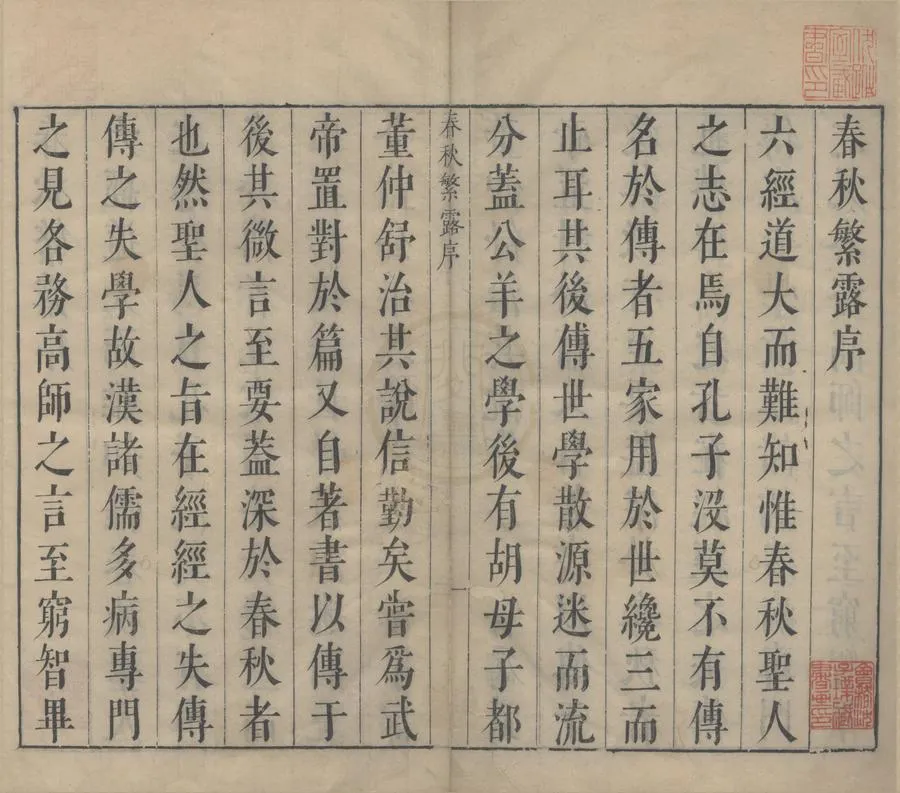 春秋繁露序
六經道大而難知惟春秋聖人
之志在焉自孔子没莫不有傳
名於傳者五家用於世纔三而
止耳其後傳世學散源迷而流
分蓋公羊之學後有胡母子都
春秋繁露序 一
董仲舒治其說信勤矣嘗爲武
帝置對於篇又自著書以傳于
後其微言至要葢深於春秋者
也然聖人之旨在經經之失傳
傳之失學故漢諸儒多病專門
之見各務高師之言至窮智畢